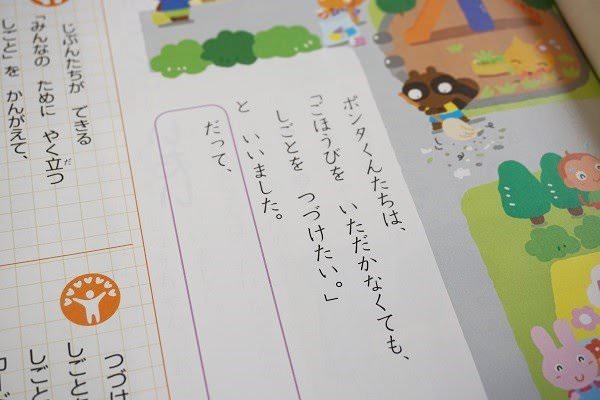 ポンタくんたちは、
「ごほうびを いただかなくても、
しごとを つづけたい。」
と いいました。
だって、
じぶんたちが できる
「みんなの ために やく立つ
しごと」を かんがえて、
つづけ
しごと
しごと
カード